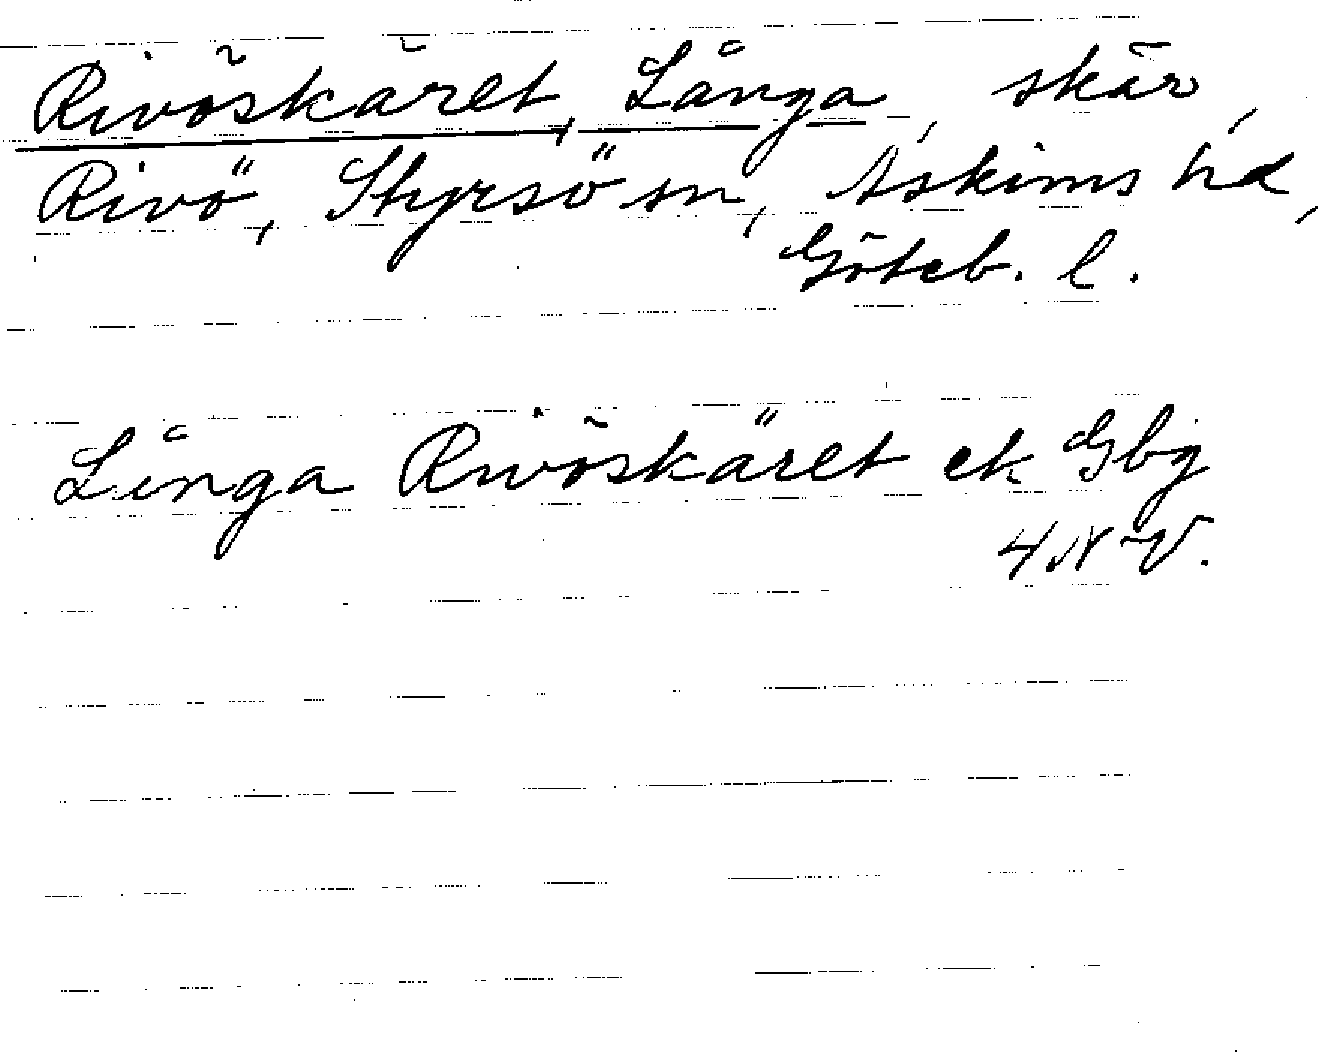 Rivöskäret, Långa, skär,
Rivö, Styrsö sn, Askims hd,
Göteb. l.
Långa Rivöskäret ek Gbg
4 N V.